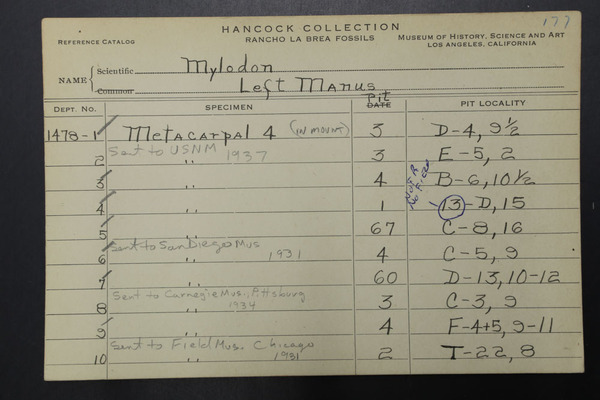 177
HANCOCK COLLECTION
REFERENCE CATALOG
RANCHO LA BREA FOSSILS
MUSEUM OF HISTORY, SCIENCE AND ART
LOS ANGELES, CALIFORNIA
NAME { Scientific Mylodon
Common Left Manus
DEPT. NO. SPECIMEN Pit DATE PIT LOCALITY
1478-1 Metacarpal 4 (IN MOUNT) 3 D-4, 9½
2 Sent to USNM 1937 " 3 E-5, 2
3 " 4 B-6, 10½
4 " 1 13-D, 15
5 " 67 C-8, 16
6 Sent to San Diego Mus 1931 " 4 C-5, 9
7 " 60 D-13, 10-12
8 Sent to Carnegie Mus., Pittsburg 1934 " 3 C-3, 9
9 " 4 F-4+5, 9-11
10 Sent to Field Mus. Chicago 1931 " 2 T-22, 8